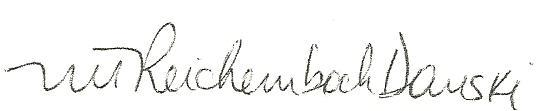 Reichembach Danski